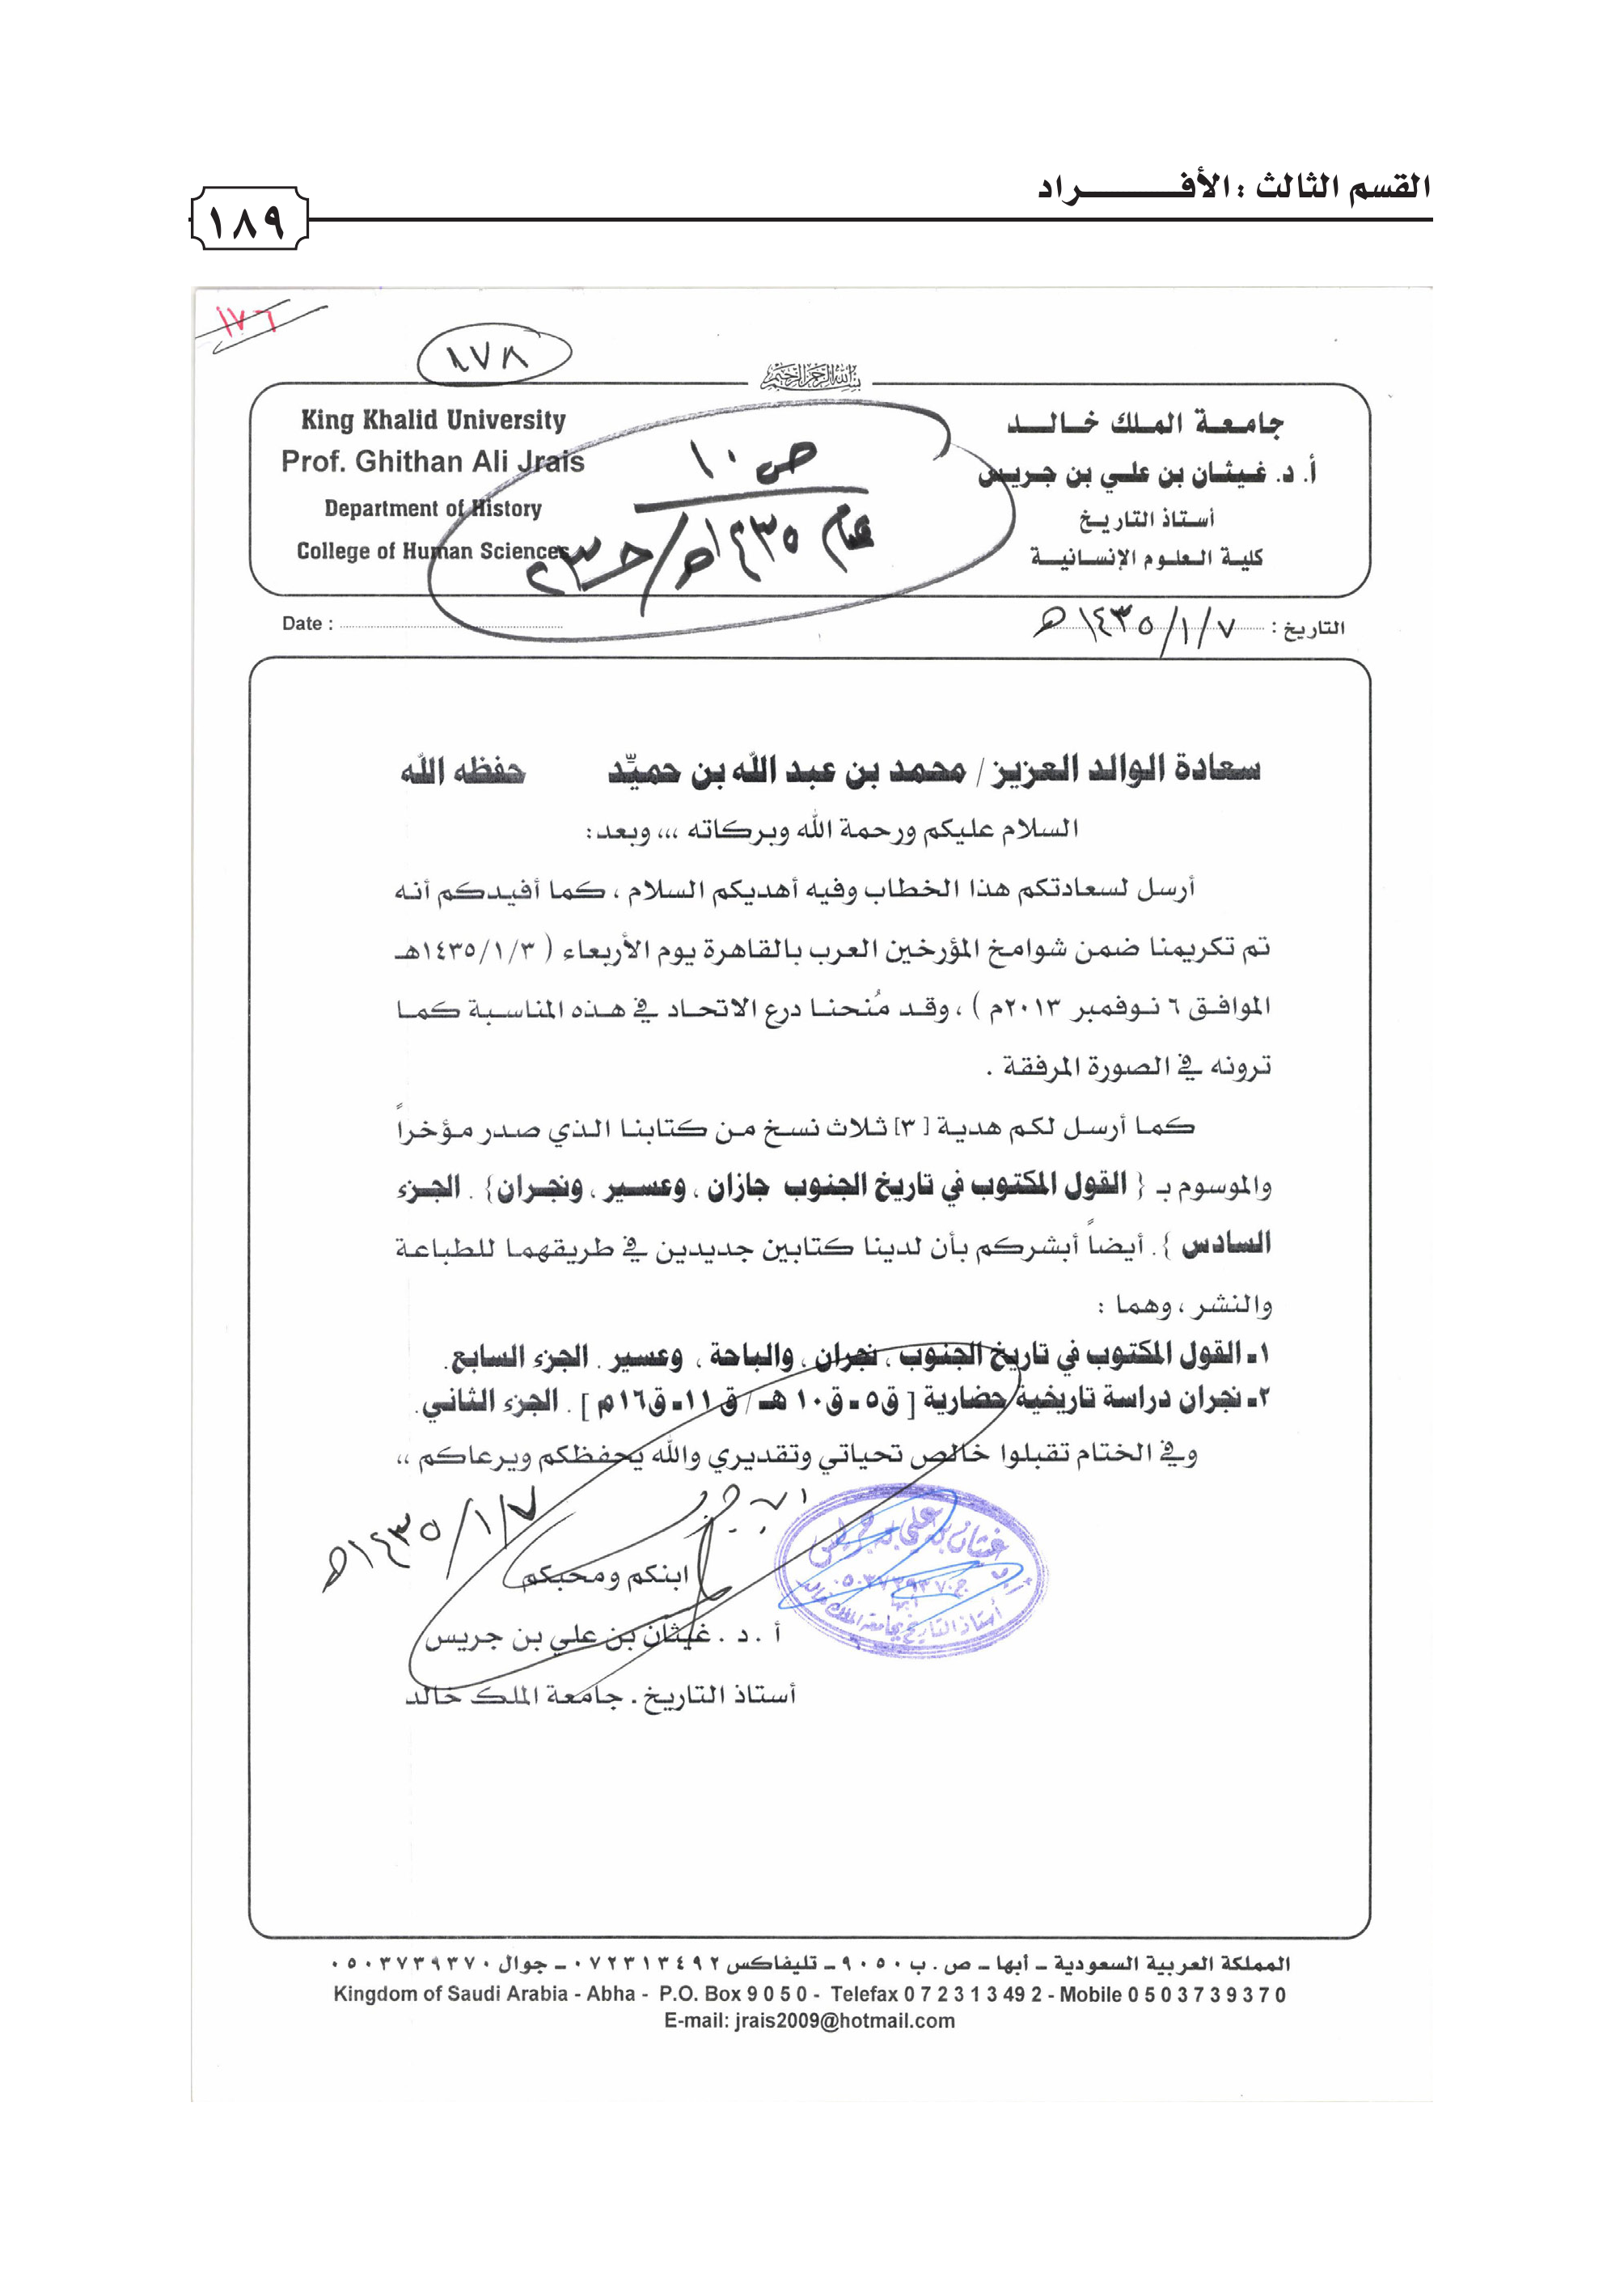 القسم الثالث : الأفـــــــــراد
١٨٩
١٧٦
١٧٨
بسم الله الرحمن الرحيم
King Khalid University
Prof. Ghithan Ali Jrais
Department of History
College of Human Sciences
جامعة الملك خالد
أ. د. غيثان بن علي بن جريس
أستاذ التاريخ
كلية العلوم الإنسانية
ص ١٠
عام ١٤٣٥هـ / حـ ٢٣
Date :
التاريخ : ١٤٣٥/١/٧ هـ
سعادة الوالد العزيز / محمد بن عبد الله بن حميِّد حفظه الله
السلام عليكم ورحمة الله وبركاته ،،، وبعد:
أرسل لسعادتكم هذا الخطاب وفيه أهديكم السلام ، كما أفيدكم أنه
تم تكريمنا ضمن شوامخ المؤرخين العرب بالقاهرة يوم الأربعاء ( ١٤٣٥/١/٣هـ
الموافق ٦ نوفمبر ٢٠١٣م ) ، وقد مُنحنا درع الاتحاد في هذه المناسبة كما
ترونه في الصورة المرفقة .
كما أرسل لكم هدية [٣] ثلاث نسخ من كتابنا الذي صدر مؤخراً
والموسوم بـ { القول المكتوب في تاريخ الجنوب جازان ، وعسير ، ونجران} . الجزء
السادس }. أيضاً أبشركم بأن لدينا كتابين جديدين في طريقهما للطباعة
والنشر ، وهما :
١ـ القول المكتوب في تاريخ الجنوب ، نجران ، والباحة ، وعسير . الجزء السابع.
٢ـ نجران دراسة تاريخية حضارية [ ق٥ ـ ق١٠ هـ / ق١١ ـ ق١٦م ] . الجزء الثاني.
وفي الختام تقبلوا خالص تحياتي وتقديري والله يحفظكم ويرعاكم ،،
١٤٣٥/١/٧ هـ
ابنكم ومحبكم
أ . د . غيثان بن علي بن جريس
أستاذ التاريخ . جامعة الملك خالد
أ.د. غيثان بن علي بن جريس
ج: ٠٥٠٣٧٣٩٣٧٠
أبها
أستاذ التاريخ بجامعة الملك خالد
المملكة العربية السعودية ـ أبها ـ ص . ب ٩٠٥٠ ـ تليفاكس ٠٧٢٣١٣٤٩٢ ـ جوال ٠٥٠٣٧٣٩٣٧٠
Kingdom of Saudi Arabia - Abha - P.O. Box 9 0 5 0 - Telefax 0 7 2 3 1 3 49 2 - Mobile 0 5 0 3 7 3 9 3 7 0
E-mail: jrais2009@hotmail.com